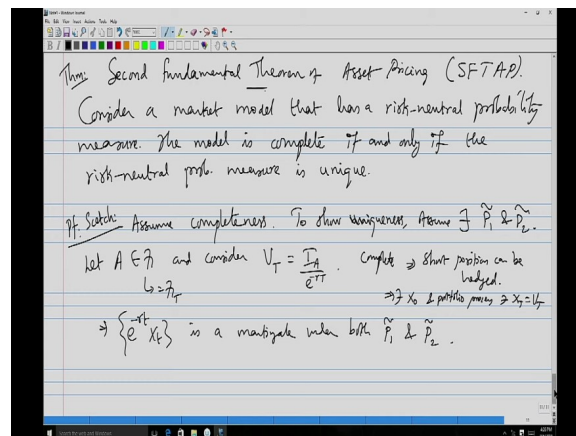 Thm: Second fundamental Theorem of Asset Pricing (SFTAP).
Consider a market model that has a risk-neutral probability
measure. The model is complete if and only if the
risk-neutral prob. measure is unique.
Pf. Scetch: Assume completeness. To show uniqueness, Assume ∃ P̃₁ & P̃₂.
Let A ∈ ℱ and consider V_T = I_A / e^{-rT}. Complete ⇒ Short position can be
hedged.
↳ = ℱ_T
⇒ ∃ X₀ & portfolio process ∋ X_T = V_T
⇒ {e^{-rt} X_t} is a martingale under both P̃₁ & P̃₂.